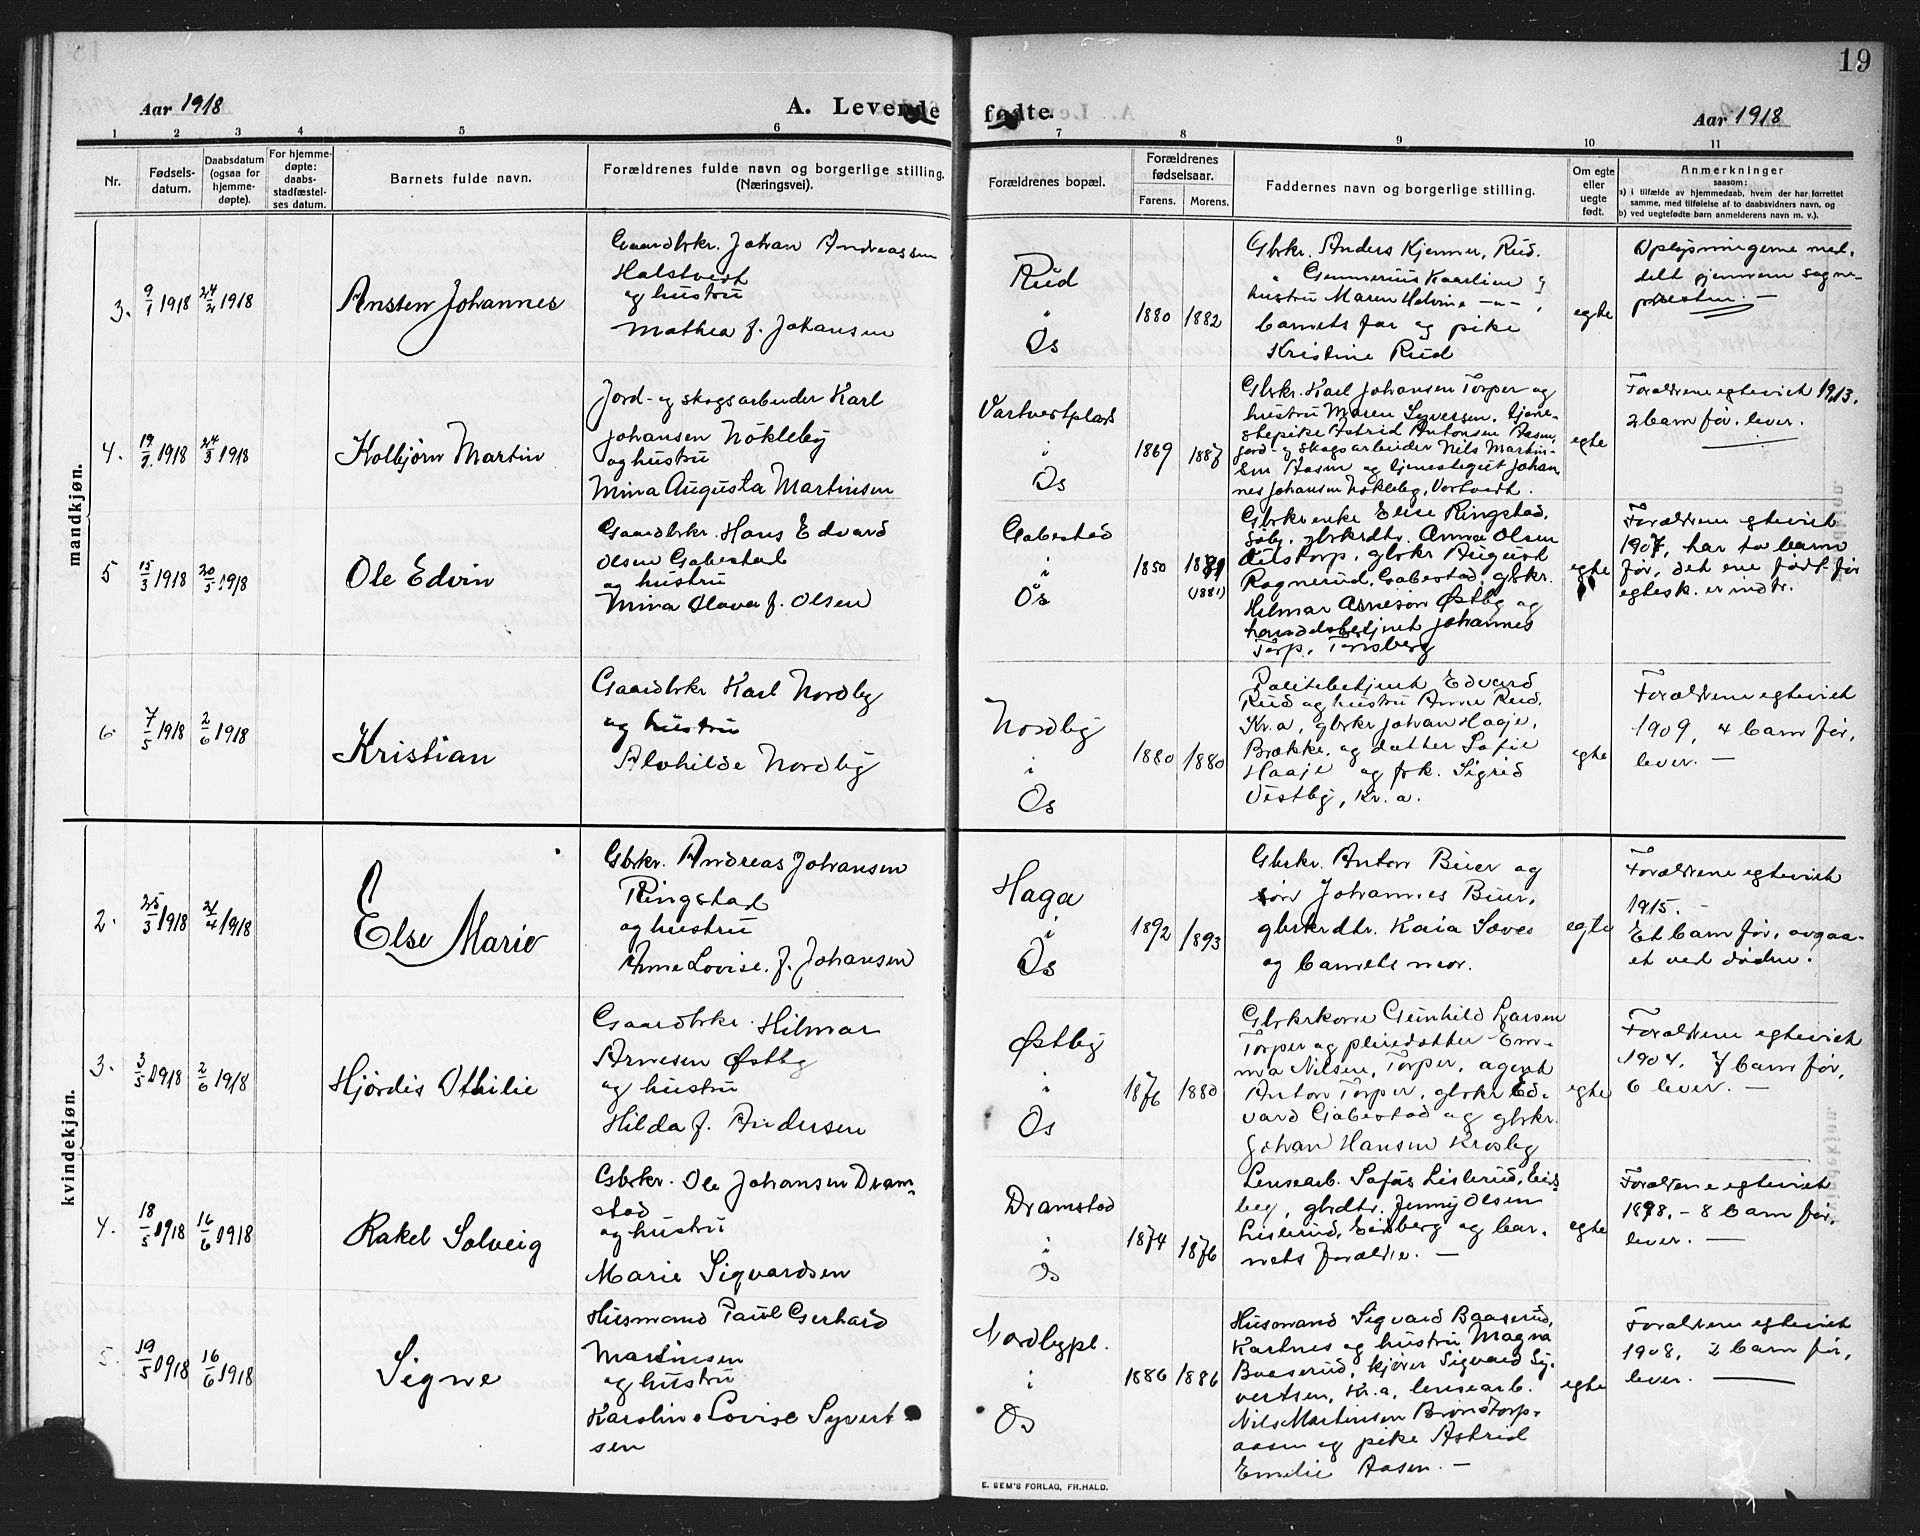 19
Aar 1918
A. Levende fødte.
Aar 1918
1 2 3 4 5 6 7 8 9 10 11
Nr.
Fødsels-
datum.
Daabsdatum
(ogsaa for
hjemme-
døpte).
For hjemme-
døpte:
daabs-
stadfæstel-
ses datum.
Barnets fulde navn.
Forældrenes fulde navn og borgerlige stilling.
(Næringsvei).
Forældrenes bopæl.
Forældrenes
fødselsaar.
Farens. Morens.
Faddernes navn og borgerlige stilling.
Om egte
eller
uegte
født.
Anmerkninger
saasom:
a) i tilfælde av hjemmedaab, hvem der har forrettet
samme, med tilføielse af to daabsvidners navn, og
b) ved uegtefødte barn anmelderens navn m. v.).
mandkjøn.
3.
9/1 1918
24/2 1918
Ansten Johannes
Gaardbrkr. Johan Andreassen
Holstvedt
og hustru
Mathea f. Johansen
Rud
"
Os
1880
1882
Gbrkr. Anders Kjenner, Rud.
" Gunnerius Kaarlien
hustru Maren Helvine -"-
barnets far og pike
Kristine Rud
egte
Oplysningerne med-
delt gjennem sogne-
presten. —
4.
1918
24/3 1918
Kolbjørn Martin
Jord- og skogsarbeider Karl
Johansen Nökleby
og hustru
Mina Augusta Martinsen
Vartvestplads
i
Os
1869
1887
Gbrkr. Karl Johansen Torper og
hustru Maren Syversen, tjene-
stepike Astrid Antonsen Aasen,
jord- og skogsarbeider Nils Martin-
sen Aasen og tjenestegut Johan-
nes Johansen Nökleby, Vortvedt.
egte
Forældrene egteviet 1913.
2 barn før, lever.
5
15/3 1918
20/5 1918
Ole Edvin
Gaardbrkr. Hans Edvard
Olsen Gabestad
og hustru
Mina Olava f. Olsen
Gabestad
i
Os
1850
(1881)
Gbrkrenke Elise Ringstad,
gbrkrdtr. Anna Olsen
gbrkr August
Ragnerud, Gabestad, gbkr.
Hilmar Arnesen Østby og
handelsbetjent Johannes
Torp, Tønsberg
egte
Forældrene egteviet
1907, har to barn
før, det ene født før
egtesk. er indtr.
6
7/5 1918
2/6 1918
Kristian
Gaardbrkr Karl Nordby
og hustru
Alvhilde Nordby
Nordby
i
Os
1880
1880
Politibetjent Edvard
Rud og hustru Anne Rud,
Kr.a, gbrkr Johan Haaje,
Brække, og datter Sofie
Haaje og frk. Sigrid
Vestby, Kr. a.
egte
Forældrene egteviet
1909, 4 barn før,
lever. —
kvindekjøn.
2.
25/3 1918
21/4 1918
Else Marie
Gbrkr. Andreas Johansen
Ringstad
og hustru
Anne Lovise f. Johansen
Haga
i
Os
1892
1893
Gbrkr. Anton Buer og
søn Johannes Buer,
gbrkrdtr. Kaia Saves
og barnets mor.
egte
Forældrene egteviet
1915. -
Et barn før, avgaa-
et ved døden.
3.
3/5 1918
2/6 1918
Hjördis Othilie
Gaardbrkr. Hilmar
Arnesen Østby
og hustru
Hilda f. Andersen
Østby
i
Os
1876
1880
Gbrkrkone Gunhild Larsen
Torper og pleiedatter Em-
ma Nilsen, Torper, agent
Anton Torper, gbrkr Ed-
vard Gabestad og gbrkr.
Johan Hansen Krosby
egte
Forældrene egteviet
1904. 7 barn før,
6 lever. —
4.
18/5 1918
16/6 1918
Rakel Solveig
Gbrkr. Ole Johansen Dram-
stad
og hustru
Marie Sigvardsen
Dramstad
i
Os
1874
1876
Lensearb. Lislerud, Eids-
berg, gbrdtr. Jenny Olsen
Lislerud, Eidsberg og bar-
nets forældre. —
egte
Forældrene egteviet
1898. - 8 barn før,
lever. —
5.
19/5 1918
16/6 1918
Signe
Husmand Paul Gerhard
Martinsen
og hustru
Karoline Lovise Syvert-
sen
Nordbypl.
i
Os
1886
1886
Husmand Sigvard Baaserud,
Kartnes og hustru Magna
Baaserud, kjører Sigvard Sy-
vertsen, Kr.a, lensearb.
Nils Martinsen Brönstorp-
aasen og pike Astrid
Emilie Aasen. —
egte
Forældrene egteviet
1908, 2 barn før,
lever. —
E. SEM'S FORLAG, FR.HALD.